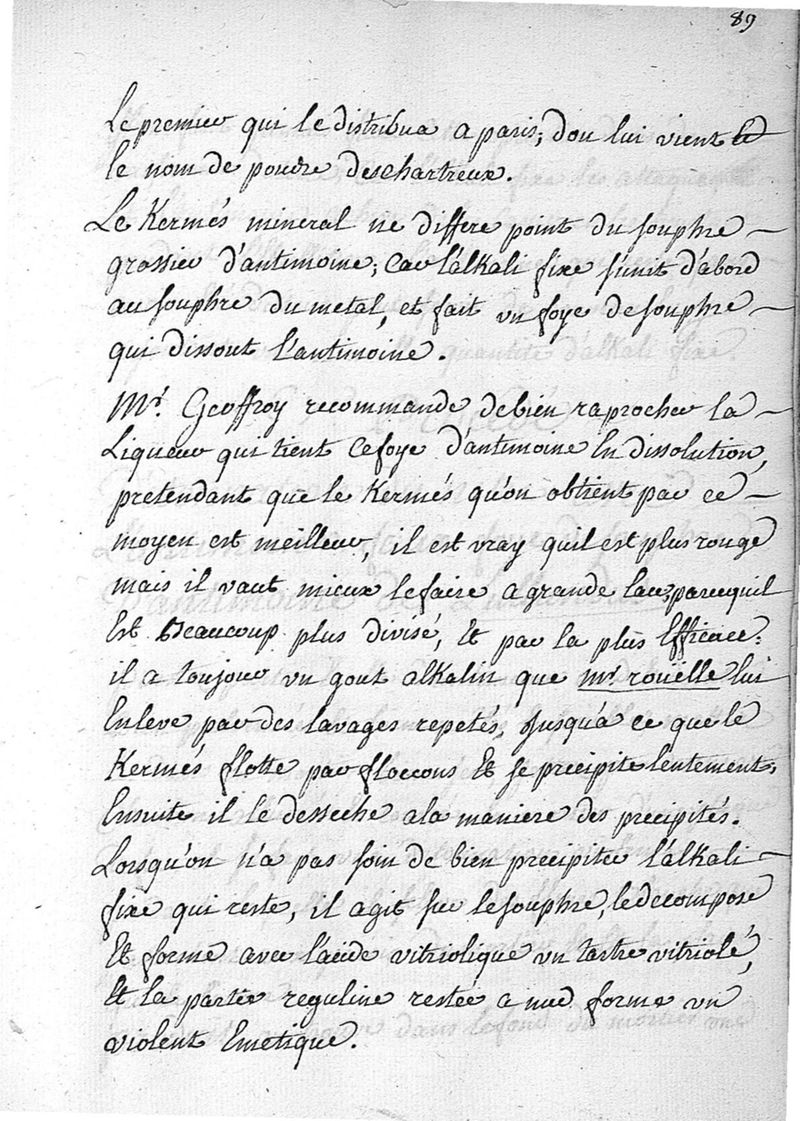 89
Le premier qui le distribua a paris; dou lui vient
le nom de poudre des chartreux.
Le Kermés mineral ne differe point du souphre
grossier d'antimoine; car l'alkali fixe s'unit d'abord
au souphre du metal, et fait un foye de souphre
qui dissout l'antimoine.
Mr. Geoffroy recommande de bien raprocher la
Liqueur qui tient ce foye d'antimoine En dissolution,
pretendant que le Kermés qu'on obtient par ce
moyen est meilleur, il est vray quil est plus rouge
mais il vaut mieux le faire a grande Eau, parcequil
Est Beaucoup plus divisé, Et par la plus Efficace:
il a toujour un gout alkalin que mr. rouelle lui
Enleve par des lavages repetés, Jusqu'a ce que le
Kermés flotte par floccons Et se precipite lentement,
Ensuite il le desseche a la maniere des precipités.
Lorsqu'on n'a pas soin de bien precipiter l'alkali
fixe qui reste, il agit sur le souphre, le decompose
Et forme avec l'acide vitriolique un tartre vitriolé,
Et la partie reguline restée a nud forme un
violent Emetique.